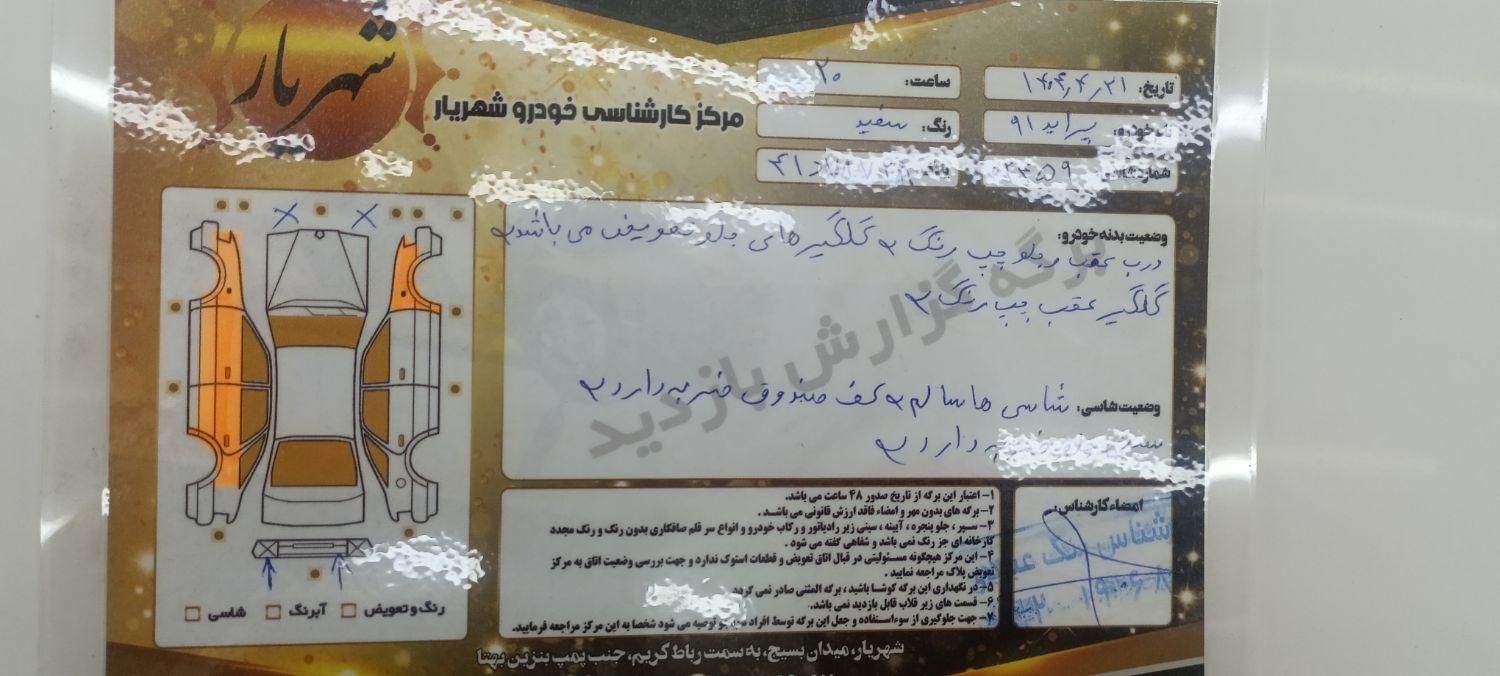 شهریار
مرکز کارشناسی خودرو شهریار
تاریخ: ۱۴۰۴٫۴٫۲۱
ساعت: ۲۰
خودرو: پراید ۹۱
رنگ: سفید
شماره شاسی
وضعیت بدنه خودرو:
درب عقب و جلو چپ رنگ، گلگیرهای جلو تعویض می باشد،
گلگیر عقب چپ رنگ،
وضعیت شاسی: شاسی ها سالم، کف صندوق ضربه دارد،
ضربه دارد،
برگه گزارش بازدید
رنگ و تعویض
آبرنگ
شاسی
۱- اعتبار این برگه از تاریخ صدور ۴۸ ساعت می باشد.
۲- برگه های بدون مهر و امضاء فاقد ارزش قانونی می باشد.
۳- سپر، جلو پنجره، آیینه، سینی زیر رادیاتور و رکاب خودرو و انواع سر قلم صافکاری بدون رنگ و رنگ مجدد
کارخانه ای جز رنگ نمی باشد و شفاهی گفته می شود.
۴- این مرکز هیچگونه مسئولیتی در قبال اتاق تعویض و قطعات استوک ندارد و جهت بررسی وضعیت اتاق به مرکز
تعویض پلاک مراجعه نمایید.
۵- در نگهداری این برگه کوشا باشید، برگه المثنی صادر نمی گردد
۶- قسمت های زیر قلاب قابل بازدید نمی باشد.
۷- جهت جلوگیری از سوء استفاده و جعل این برگه توسط افراد توصیه می شود شخصا به این مرکز مراجعه فرمایید.
امضاء کارشناس:
شناس رنگ
شهریار، میدان بسیج، به سمت رباط کریم، جنب پمپ بنزین بهتا